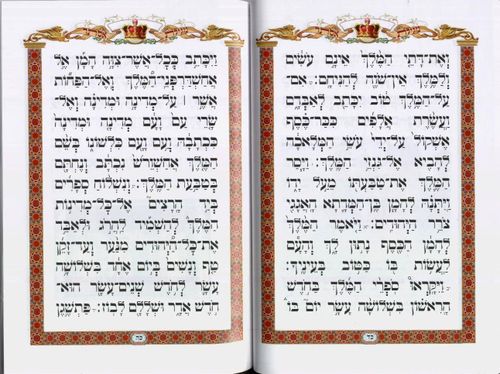 וְאֶת־דָּתֵי הַמֶּלֶךְ אֵינָם עֹשִׂים
וְלַמֶּלֶךְ אֵין־שֹׁוֶה לְהַנִּיחָם: אִם־
עַל־הַמֶּלֶךְ טוֹב יִכָּתֵב לְאַבְּדָם
וַעֲשֶׂרֶת אֲלָפִים כִּכַּר־כֶּסֶף
אֶשְׁקוֹל עַל־יְדֵי עֹשֵׂי הַמְּלָאכָה
לְהָבִיא אֶל־גִּנְזֵי הַמֶּלֶךְ: וַיָּסַר
הַמֶּלֶךְ אֶת־טַבַּעְתּוֹ מֵעַל יָדוֹ
וַיִּתְּנָהּ לְהָמָן בֶּן־הַמְּדָתָא הָאֲגָגִי
צֹרֵר הַיְּהוּדִים: וַיֹּאמֶר הַמֶּלֶךְ
לְהָמָן הַכֶּסֶף נָתוּן לָךְ וְהָעָם
לַעֲשׂוֹת בּוֹ כַּטּוֹב בְּעֵינֶיךָ:
וַיִּקָּרְאוּ סֹפְרֵי הַמֶּלֶךְ בַּחֹדֶשׁ
הָרִאשׁוֹן בִּשְׁלוֹשָׁה עָשָׂר יוֹם בּוֹ
כד
וַיִּכָּתֵב כְּכָל־אֲשֶׁר־צִוָּה הָמָן אֶל
אֲחַשְׁדַּרְפְּנֵי־הַמֶּלֶךְ וְאֶל־הַפַּחוֹת
אֲשֶׁר ׀ עַל־מְדִינָה וּמְדִינָה וְאֶל־
שָׂרֵי עַם וָעָם מְדִינָה וּמְדִינָה
כִּכְתָבָהּ וְעַם וָעָם כִּלְשׁוֹנוֹ בְּשֵׁם
הַמֶּלֶךְ אֲחַשְׁוֵרֹשׁ נִכְתָּב וְנֶחְתָּם
בְּטַבַּעַת הַמֶּלֶךְ: וְנִשְׁלוֹחַ סְפָרִים
בְּיַד הָרָצִים אֶל־כָּל־מְדִינוֹת
הַמֶּלֶךְ לְהַשְׁמִיד לַהֲרֹג וּלְאַבֵּד
אֶת־כָּל־הַיְּהוּדִים מִנַּעַר וְעַד־זָקֵן
טַף וְנָשִׁים בְּיוֹם אֶחָד בִּשְׁלוֹשָׁה
עָשָׂר לְחֹדֶשׁ שְׁנֵים־עָשָׂר הוּא־
חֹדֶשׁ אֲדָר וּשְׁלָלָם לָבוֹז: פַּתְשֶׁגֶן
כה